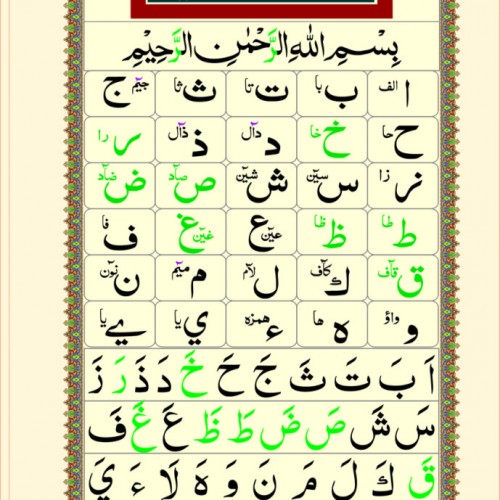 بِسْمِ اللّٰهِ الرَّحْمٰنِ الرَّحِيْمِ
ا الف ب با ت تا ث ثا ج جيٓم
ح حا خ خا د داٰل ذ ذاٰل ر را
ز زا س سيٓن ش شيٓن ص صآد ض ضآد
ط طا ظ ظا ع عيٓن غ غيٓن ف فا
ق قآف ك كآف ل لآم م ميٓم ن نوٓن
و واؤ ه ها ء همزه ي يا ے يا
اَ بَ تَ ثَ جَ حَ خَ دَ ذَ رَ زَ
سَ شَ صَ ضَ طَ ظَ عَ غَ فَ
قَ كَ لَ مَ نَ وَ هَ لَا ءَ يَ